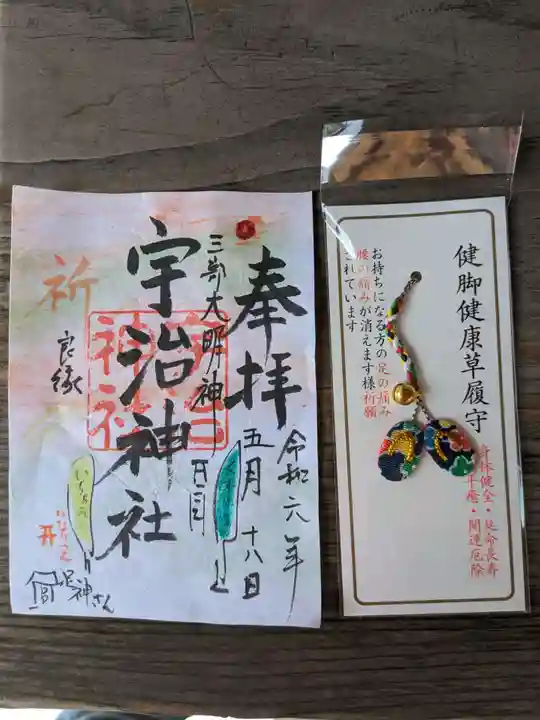 奉拝
三嶽大明神
宇治神社
令和六年
五月十八日
祈
良縁
いちょう
足神さん
健脚健康草履守
お持ちになる方の足の痛み
腰の痛みが消えます様祈願
されています
身体健全・延命長寿
平癒・開運厄除